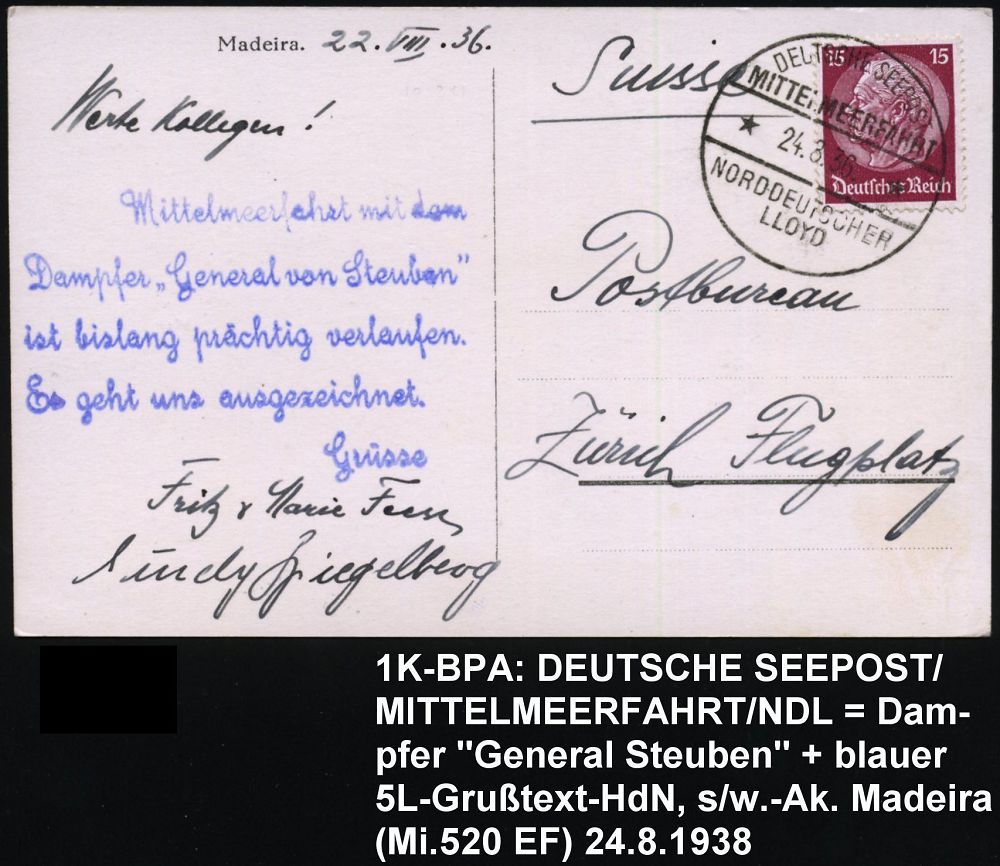 Madeira. 22. VIII. 36.
Werte Kollegen !
Mittelmeerfahrt mit dem
Dampfer „General von Steuben"
ist bislang prächtig verlaufen.
Es geht uns ausgezeichnet.
Grüsse
Fritz & Marie
Spiegelberg
Suisse
DEUTSCHE SEEPOST
MITTELMEERFAHRT
24.8.36
NORDDEUTSCHER
LLOYD
15 15
Deutsches Reich
Postbureau
Zürich Flugplatz
1K-BPA: DEUTSCHE SEEPOST/
MITTELMEERFAHRT/NDL = Dam-
pfer "General Steuben" + blauer
5L-Grußtext-HdN, s/w.-Ak. Madeira
(Mi.520 EF) 24.8.1938